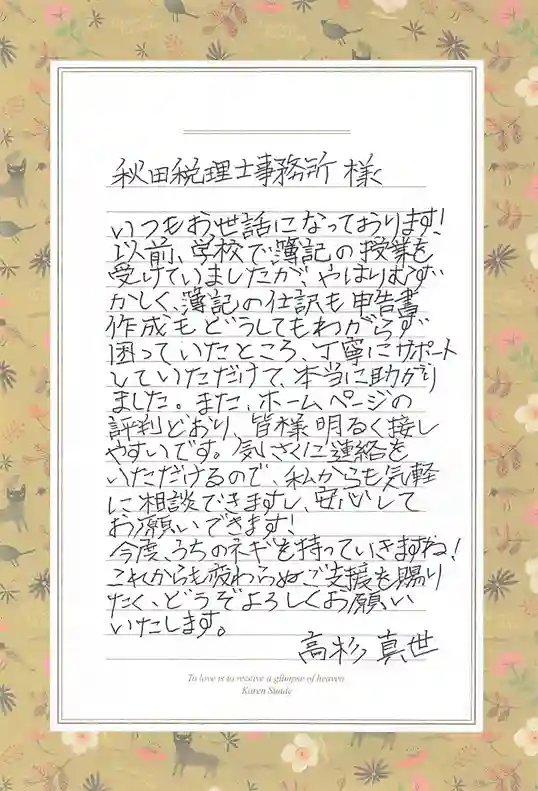 秋田税理士事務所 様
いつもお世話になっております!
以前、学校で簿記の授業を
受けていましたが、やはりむず
かしく、簿記の仕訳も申告書
作成もどうしてもわからず
困っていたところ、丁寧にサポート
していただけて、本当に助かり
ました。また、ホームページの
評判どおり、皆様明るく接し
やすいです。気さくに連絡を
いただけるので、私からも気軽
に相談できますし、安心して
お願いできます!
今度、うちのネギを持っていきますね!
これからも変わらぬご支援を賜り
たく、どうぞよろしくお願い
いたします。
高杉 真世
To love is to receive a glimpse of heaven
Karen Sunde